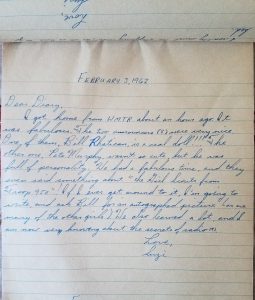 FEBRUARY 3, 1962
Dear Diary,
I got home from WMTR about an hour ago. It
was fabulous. The two announcers (?) were very nice.
One of them, Bill is a real doll! The
other one, Pete Murphy wasn't so cute, but he was
full of personality. We had a fabulous time, and they
even said something about "the Girl Scouts from
Troop 950". If I ever get around to it, I'm going to
write and ask Bill for an autographed picture (as are
many of the other girls). We also learned a lot, and I
am now very knowing about the secrets of radio
Love,
Suzi